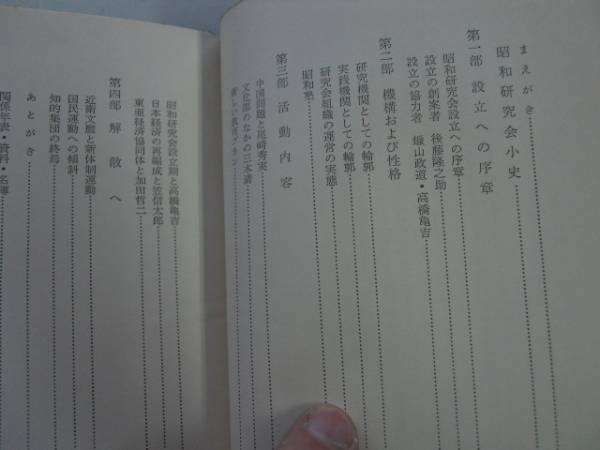 まえがき
昭和研究会小史
第一部 設立への序章
昭和研究会設立への序章
設立の創案者 後藤隆之助
設立の協力者 蠟山政道・高橋亀吉
第二部 機構および性格
研究機関としての輪郭
実践機関としての輪郭
研究会組織の運営の実態
昭和塾
第三部 活動内容
中国問題と尾崎秀実
文化部のなかの三木清
新しい教育プラン
昭和研究会設立期と高橋亀吉
日本経済の再編成と笠信太郎
東亜経済協同体と加田哲二
第四部 解散へ
近衛文麿と新体制運動
国民運動への傾斜
知的集団の終焉
あとがき
関係年表・資料・名簿